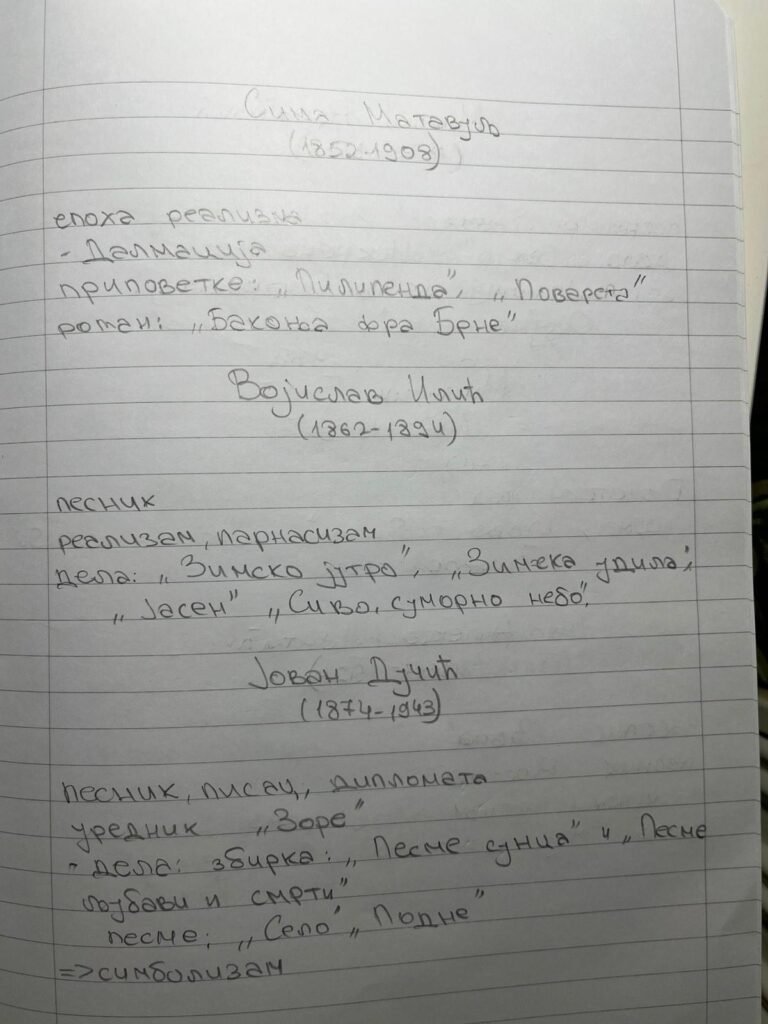 Сима Матавуљ
(1852-1908)
епоха реализма
- Далмација
приповетке: „Пилипенда”, „Поварета”
роман: „Бакоња фра Брне”
Војислав Илић
(1862-1894)
песник
реализам, парнасизам
дела: „Зимско јутро”, „Зимска идила”,
„Јасен” „Сиво, суморно небо”,
Јован Дучић
(1874-1943)
песник, писац, дипломата
уредник „Зоре”
- дела: збирка: „Песме сунца” и „Песме
љубави и смрти”
песме: „Село” „Подне”
=>симболизам